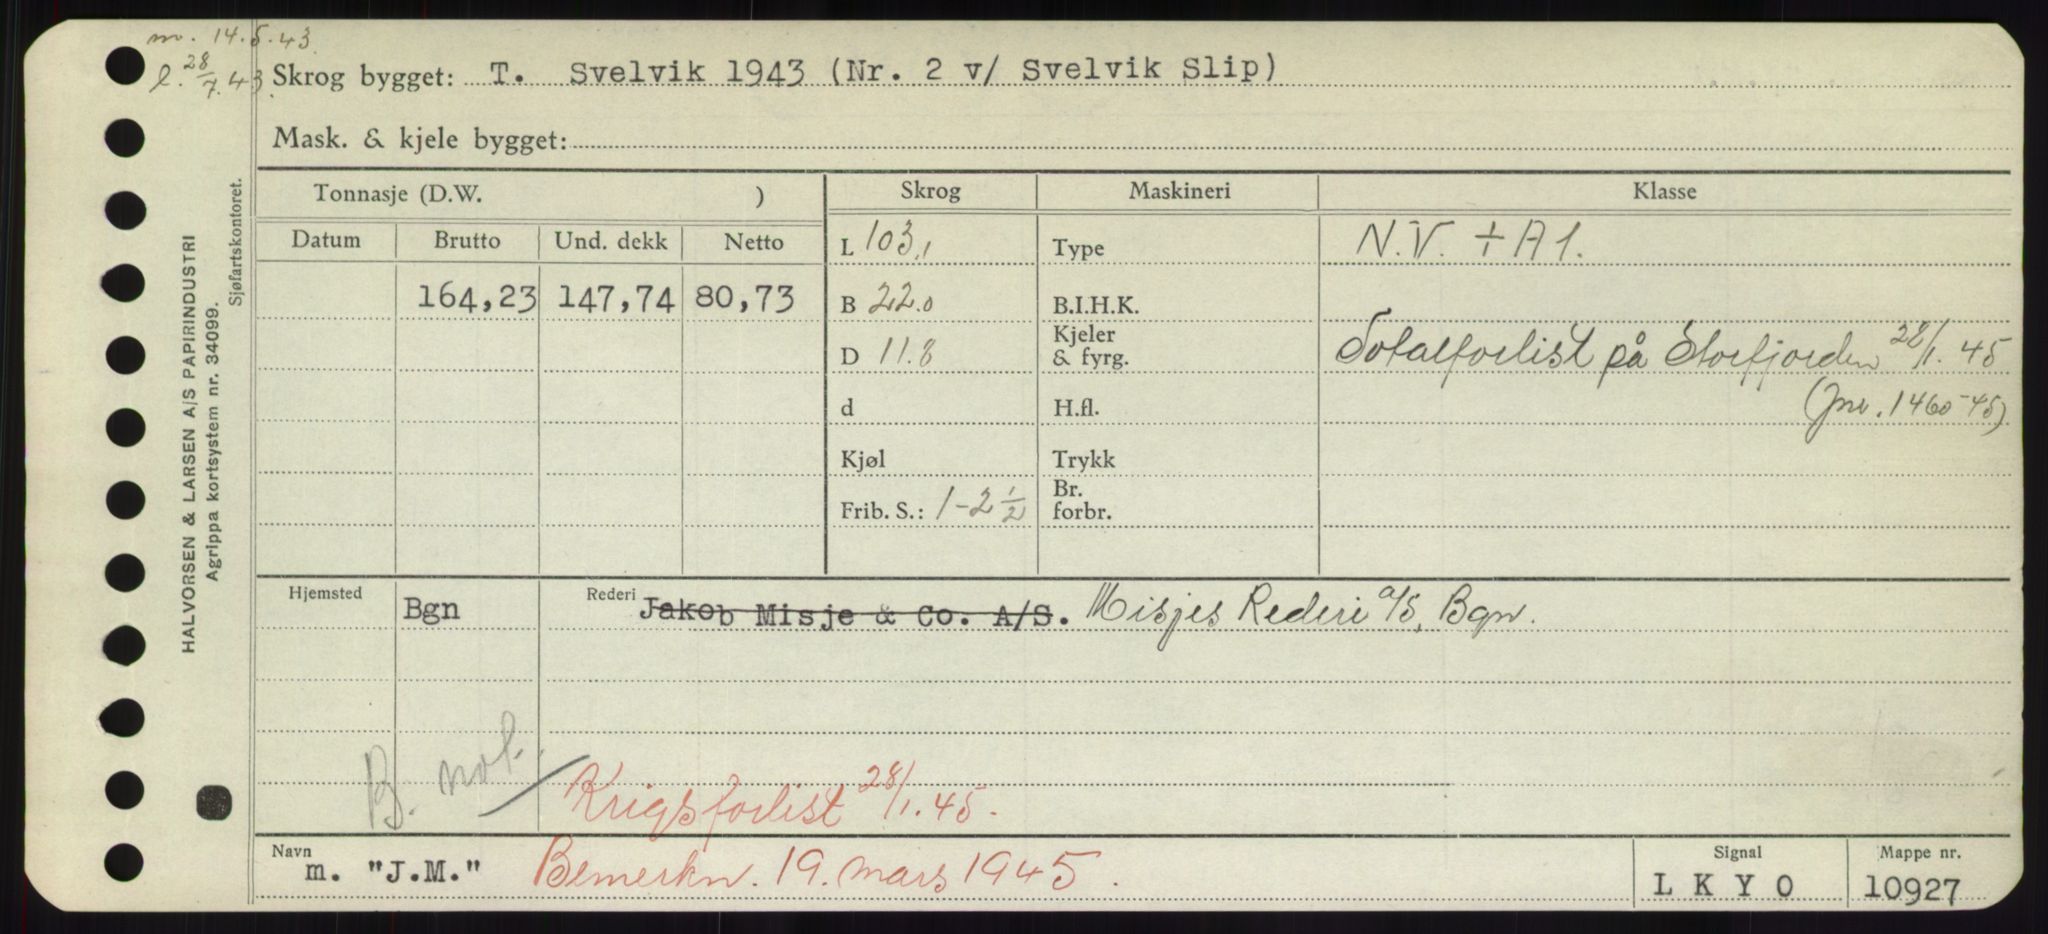 m. 14.5.43.
l. 28/7.43.
Skrog bygget: T. Svelvik 1943 (Nr. 2 v/ Svelvik Slip)
Mask. & kjele bygget:
HALVORSEN & LARSEN A/S PAPIRINDUSTRI
Agrippa kortsystem nr. 34099.
Sjøfartskontoret.
Tonnasje (D.W. ) Skrog Maskineri Klasse
Datum Brutto Und. dekk Netto L 103,1 Type N.V. +A1.
164,23 147,74 80,73 B 22.0 B.I.H.K.
D 11.8 Kjeler & fyrg. Totalforlist på Storfjorden 28/1.45
d H.fl. (Jnr. 1460-45)
Kjøl Trykk
Frib. S.: 1-2 1/2 Br. forbr.
Hjemsted Bgn Rederi Jakob Misje & Co. A/S. Misjes Rederi a/s, Bgn.
B. not.
Krigsforlist 28/1.45.
Navn m. "J.M." Bemerkn. 19. mars 1945.
Signal LKYO
Mappe nr. 10927